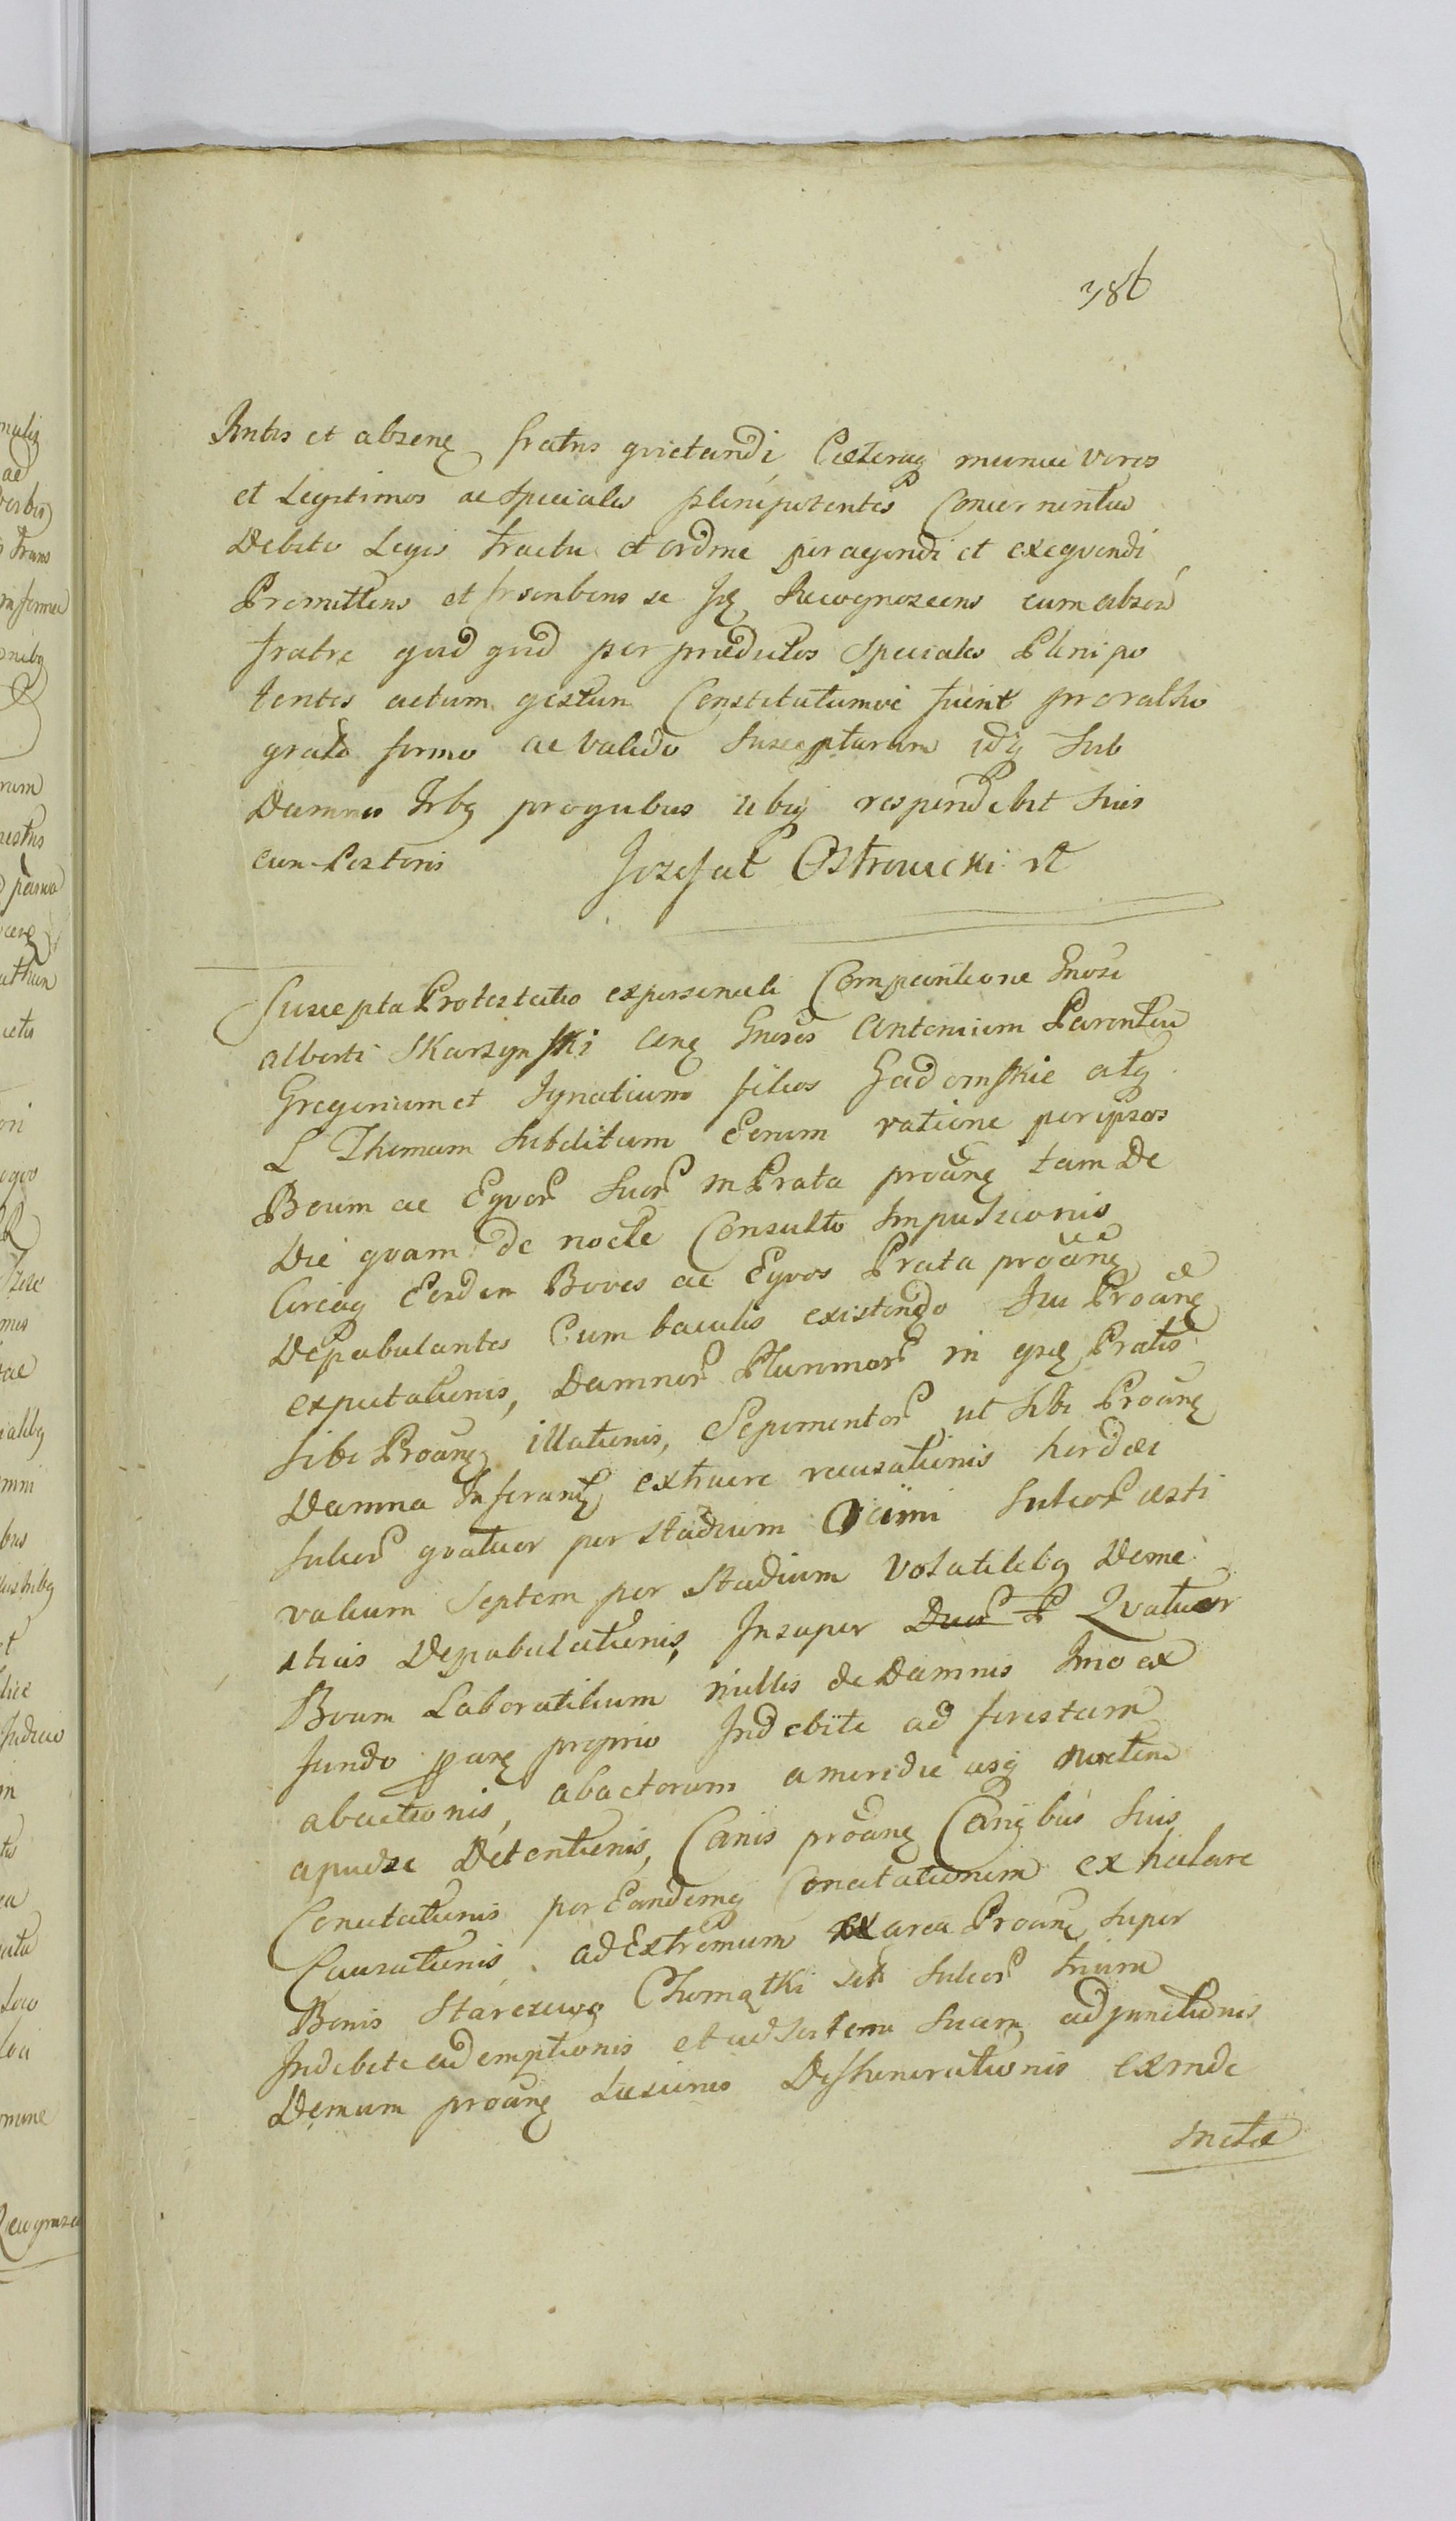 386
Intis et absenȩ fratris quietandi Cæteraq munia veros
et Legitimos ac speciales plenipotentes Concernentia
Debito Legis tractu et ordine peragendi et exequendi
Promittens et se Recognoscens cum absen
fratre quid quid per prædictos speciales Plenipo
tentes actum gestum Constitutumve fuerit pro ratho
grato firmo ac valido suscepturum idq sub
Damnis Trbq proqubus ubiq respondebit suis
cum Posteris Jozefat Ostrowicki
Suscepta Protestatio ex personali Comparitione Gnosi
Alberti Skarzynski Gnosos Antonium Parentem
Gregorium et Ignatium filios Gadomskie atq
L Thomam Subditum Eorum ratione per ipsos
Boum ac Eqvor suor in Prata proanȩ tam De
Die qvam de nocte Consulto Impulsionis
Circaq Eosdem Boves ac Eqvos Prata proanȩ
Depabulantes Cum baculis existendo Proanȩ
expectationis, Damnor Plurimor in Pratis
sibi Proanȩ illationis, Sepimentor ut sibi Proanȩ
Damna Inferant extruere recusationis hordei
sulcor qvatuor per stadium sulcor æsti
valium septem per stadium volatilibq Dome
sticis Depabulationis, Insuper Qvatuor
Boum Laboratilium nullis de Damnis Imo ex
fundo proprio Indebite ad forestam
abactionis, abactorum a meridie usq noctem
apud se Detentionis, Canis proanȩ Canibus suis
Concitationis per Eandemq Concitationem exhalare
Causationis, ad Extremum ex area Proanȩ super
Bonis Starczewo Chomątki sit sulcor trium
Indebite ademptionis et ad sortem suam adjunctionis
Demum proanȩ Læsionis Dishonorationis Exinde